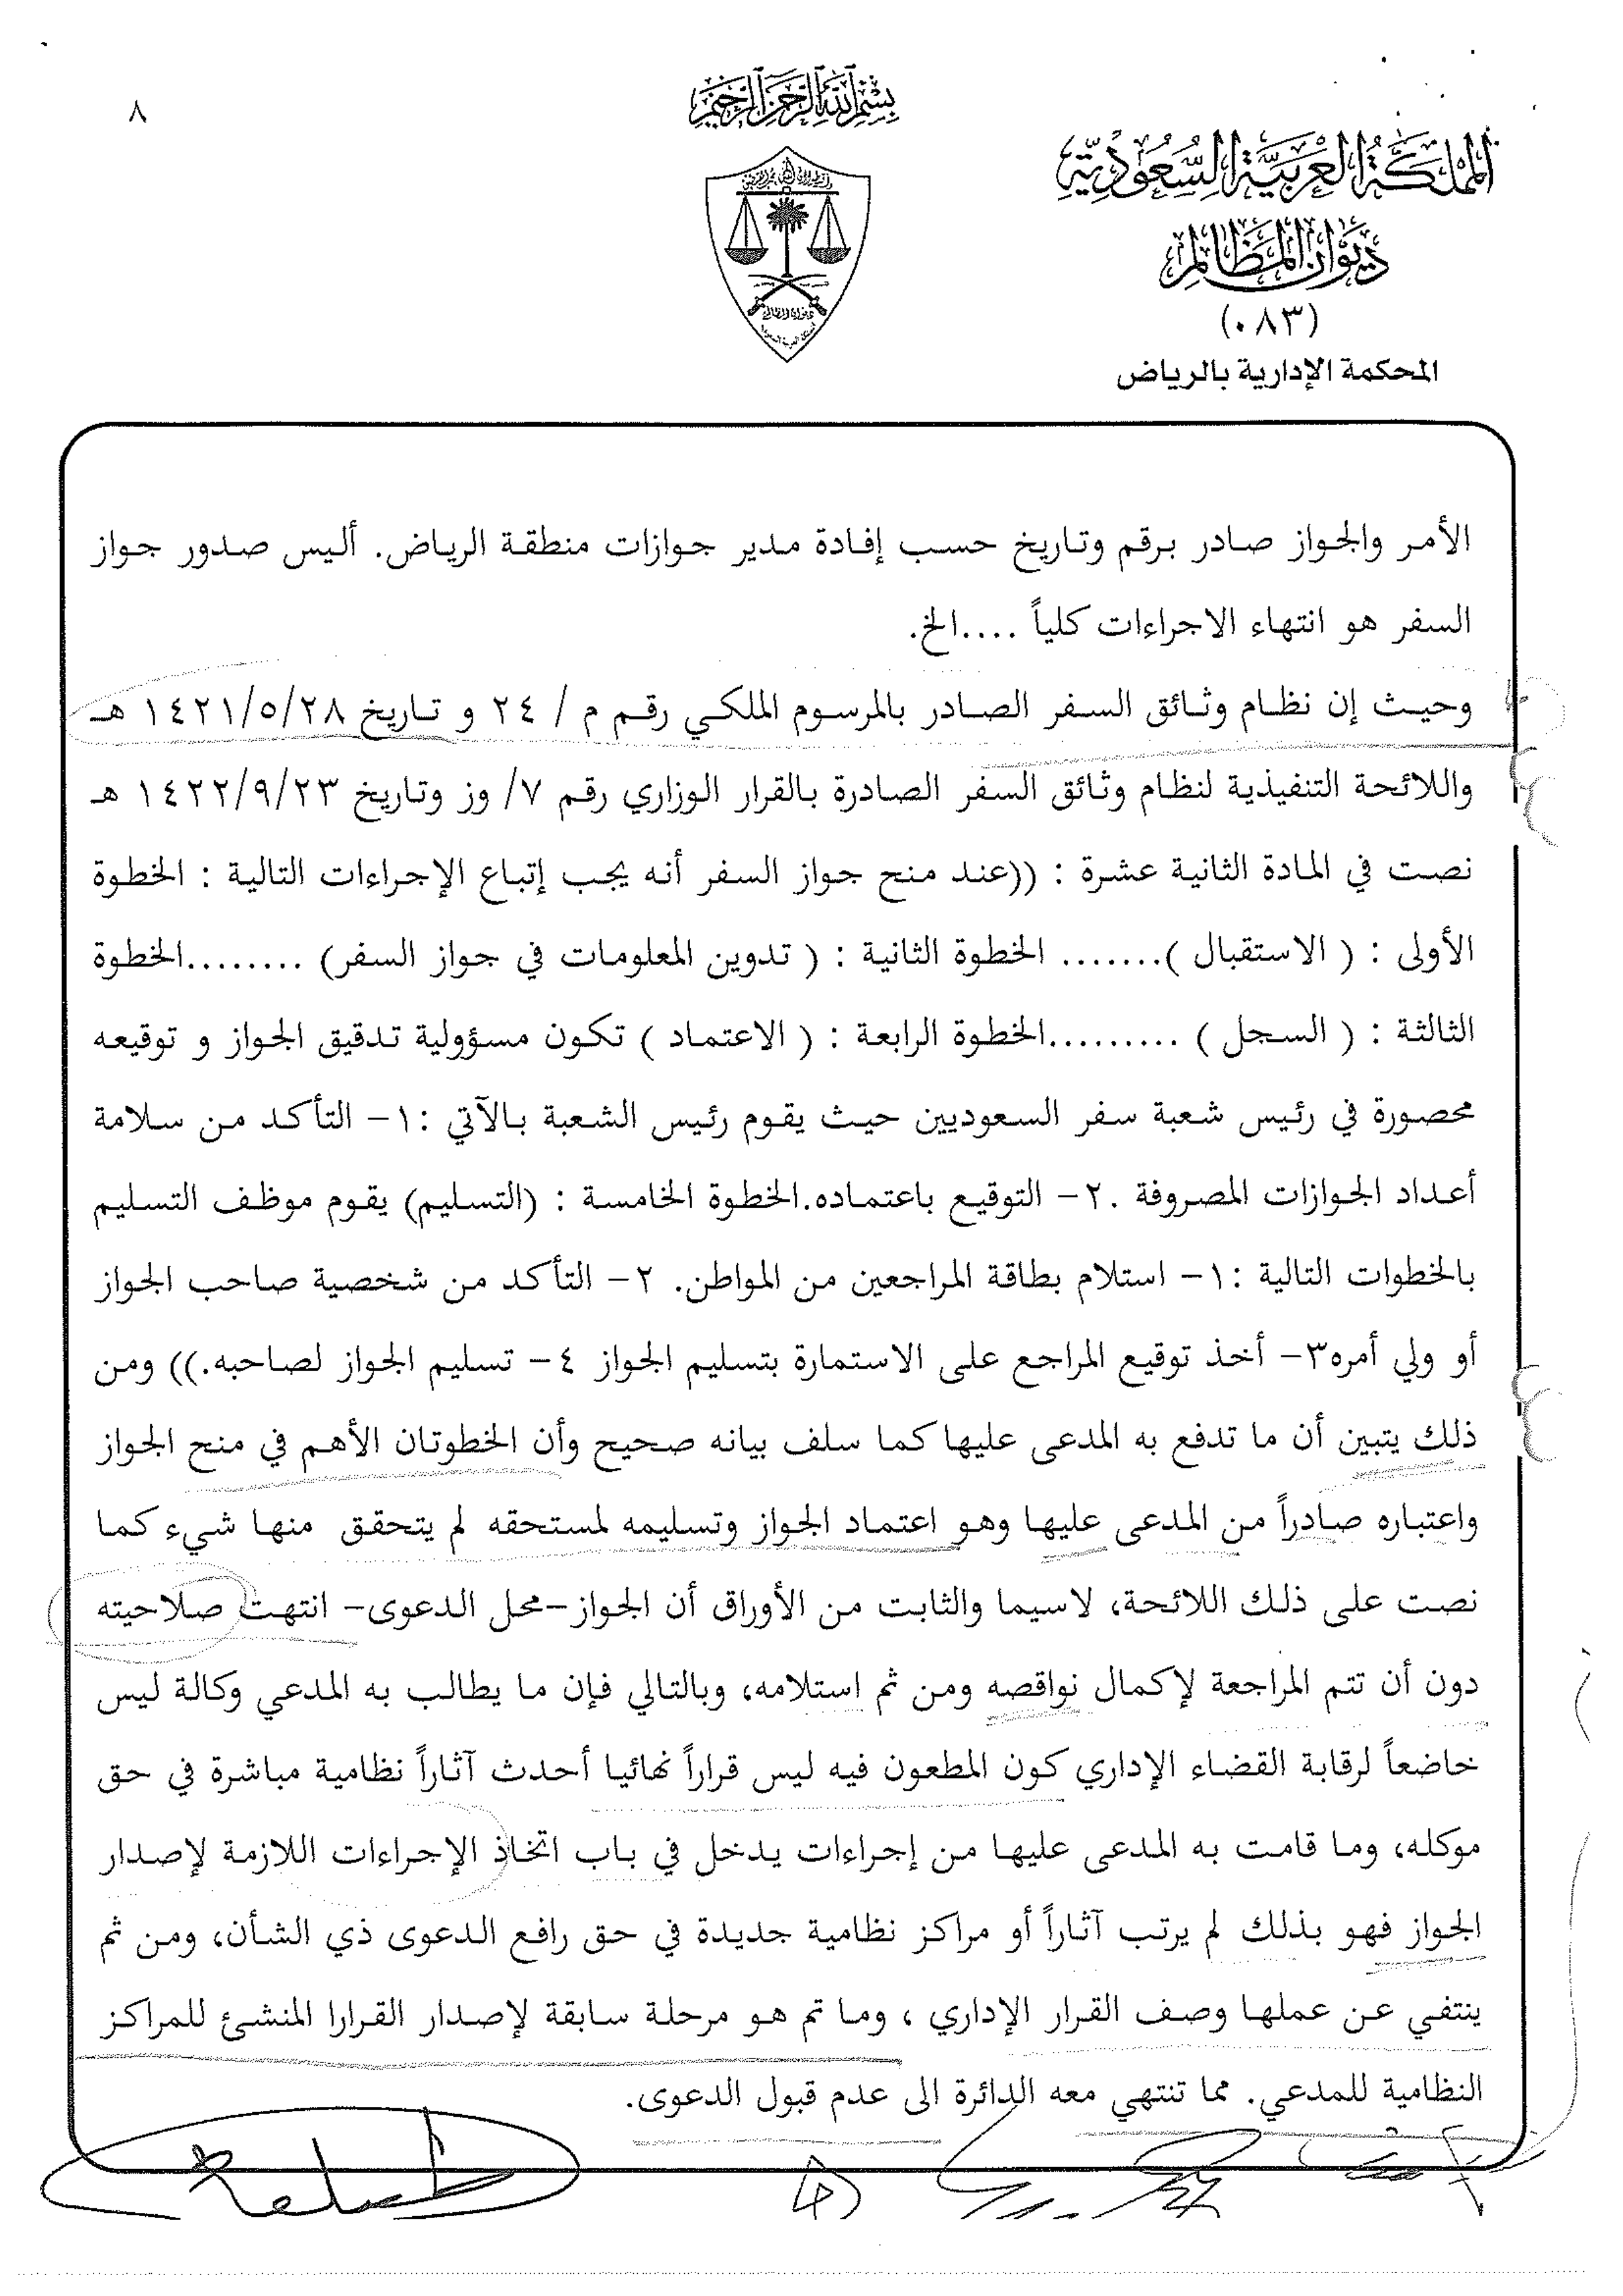 ٨
بسم الله الرحمن الرحيم
المملكة العربية السعودية
ديوان المظالم
(٠٨٣)
المحكمة الإدارية بالرياض
الأمر والجواز صادر برقم وتاريخ حسب إفادة مدير جوازات منطقة الرياض. أليس صدور جواز
السفر هو انتهاء الاجراءات كلياً ....الخ.
وحيث إن نظام وثائق السفر الصادر بالمرسوم الملكي رقم م / ٢٤ و تاريخ ١٤٢١/٥/٢٨ هـ
واللائحة التنفيذية لنظام وثائق السفر الصادرة بالقرار الوزاري رقم ٧/ وز وتاريخ ١٤٢٢/٩/٢٣ هـ
نصت في المادة الثانية عشرة : ((عند منح جواز السفر أنه يجب إتباع الإجراءات التالية : الخطوة
الأولى : ( الاستقبال )....... الخطوة الثانية : ( تدوين المعلومات في جواز السفر) ........الخطوة
الثالثة : ( السجل ) .........الخطوة الرابعة : ( الاعتماد ) تكون مسؤولية تدقيق الجواز و توقيعه
محصورة في رئيس شعبة سفر السعوديين حيث يقوم رئيس الشعبة بالآتي :١- التأكد من سلامة
أعداد الجوازات المصروفة .٢- التوقيع باعتماده.الخطوة الخامسة : (التسليم) يقوم موظف التسليم
بالخطوات التالية :١- استلام بطاقة المراجعين من المواطن. ٢- التأكد من شخصية صاحب الجواز
أو ولي أمره٣- أخذ توقيع المراجع على الاستمارة بتسليم الجواز ٤- تسليم الجواز لصاحبه.)) ومن
ذلك يتبين أن ما تدفع به المدعى عليها كما سلف بيانه صحيح وأن الخطوتان الأهم في منح الجواز
واعتباره صادراً من المدعى عليها وهو اعتماد الجواز وتسليمه لمستحقه لم يتحقق منها شيء كما
نصت على ذلك اللائحة، لاسيما والثابت من الأوراق أن الجواز-محل الدعوى- انتهت صلاحيته
دون أن تتم المراجعة لإكمال نواقصه ومن ثم استلامه، وبالتالي فإن ما يطالب به المدعي وكالة ليس
خاضعاً لرقابة القضاء الإداري كون المطعون فيه ليس قراراً نهائيا أحدث آثاراً نظامية مباشرة في حق
موكله، وما قامت به المدعى عليها من إجراءات يدخل في باب اتخاذ الإجراءات اللازمة لإصدار
الجواز فهو بذلك لم يرتب آثاراً أو مراكز نظامية جديدة في حق رافع الدعوى ذي الشأن، ومن ثم
ينتفي عن عملها وصف القرار الإداري ، وما تم هو مرحلة سابقة لإصدار القرارا المنشئ للمراكز
النظامية للمدعي. مما تنتهي معه الدائرة الى عدم قبول الدعوى.